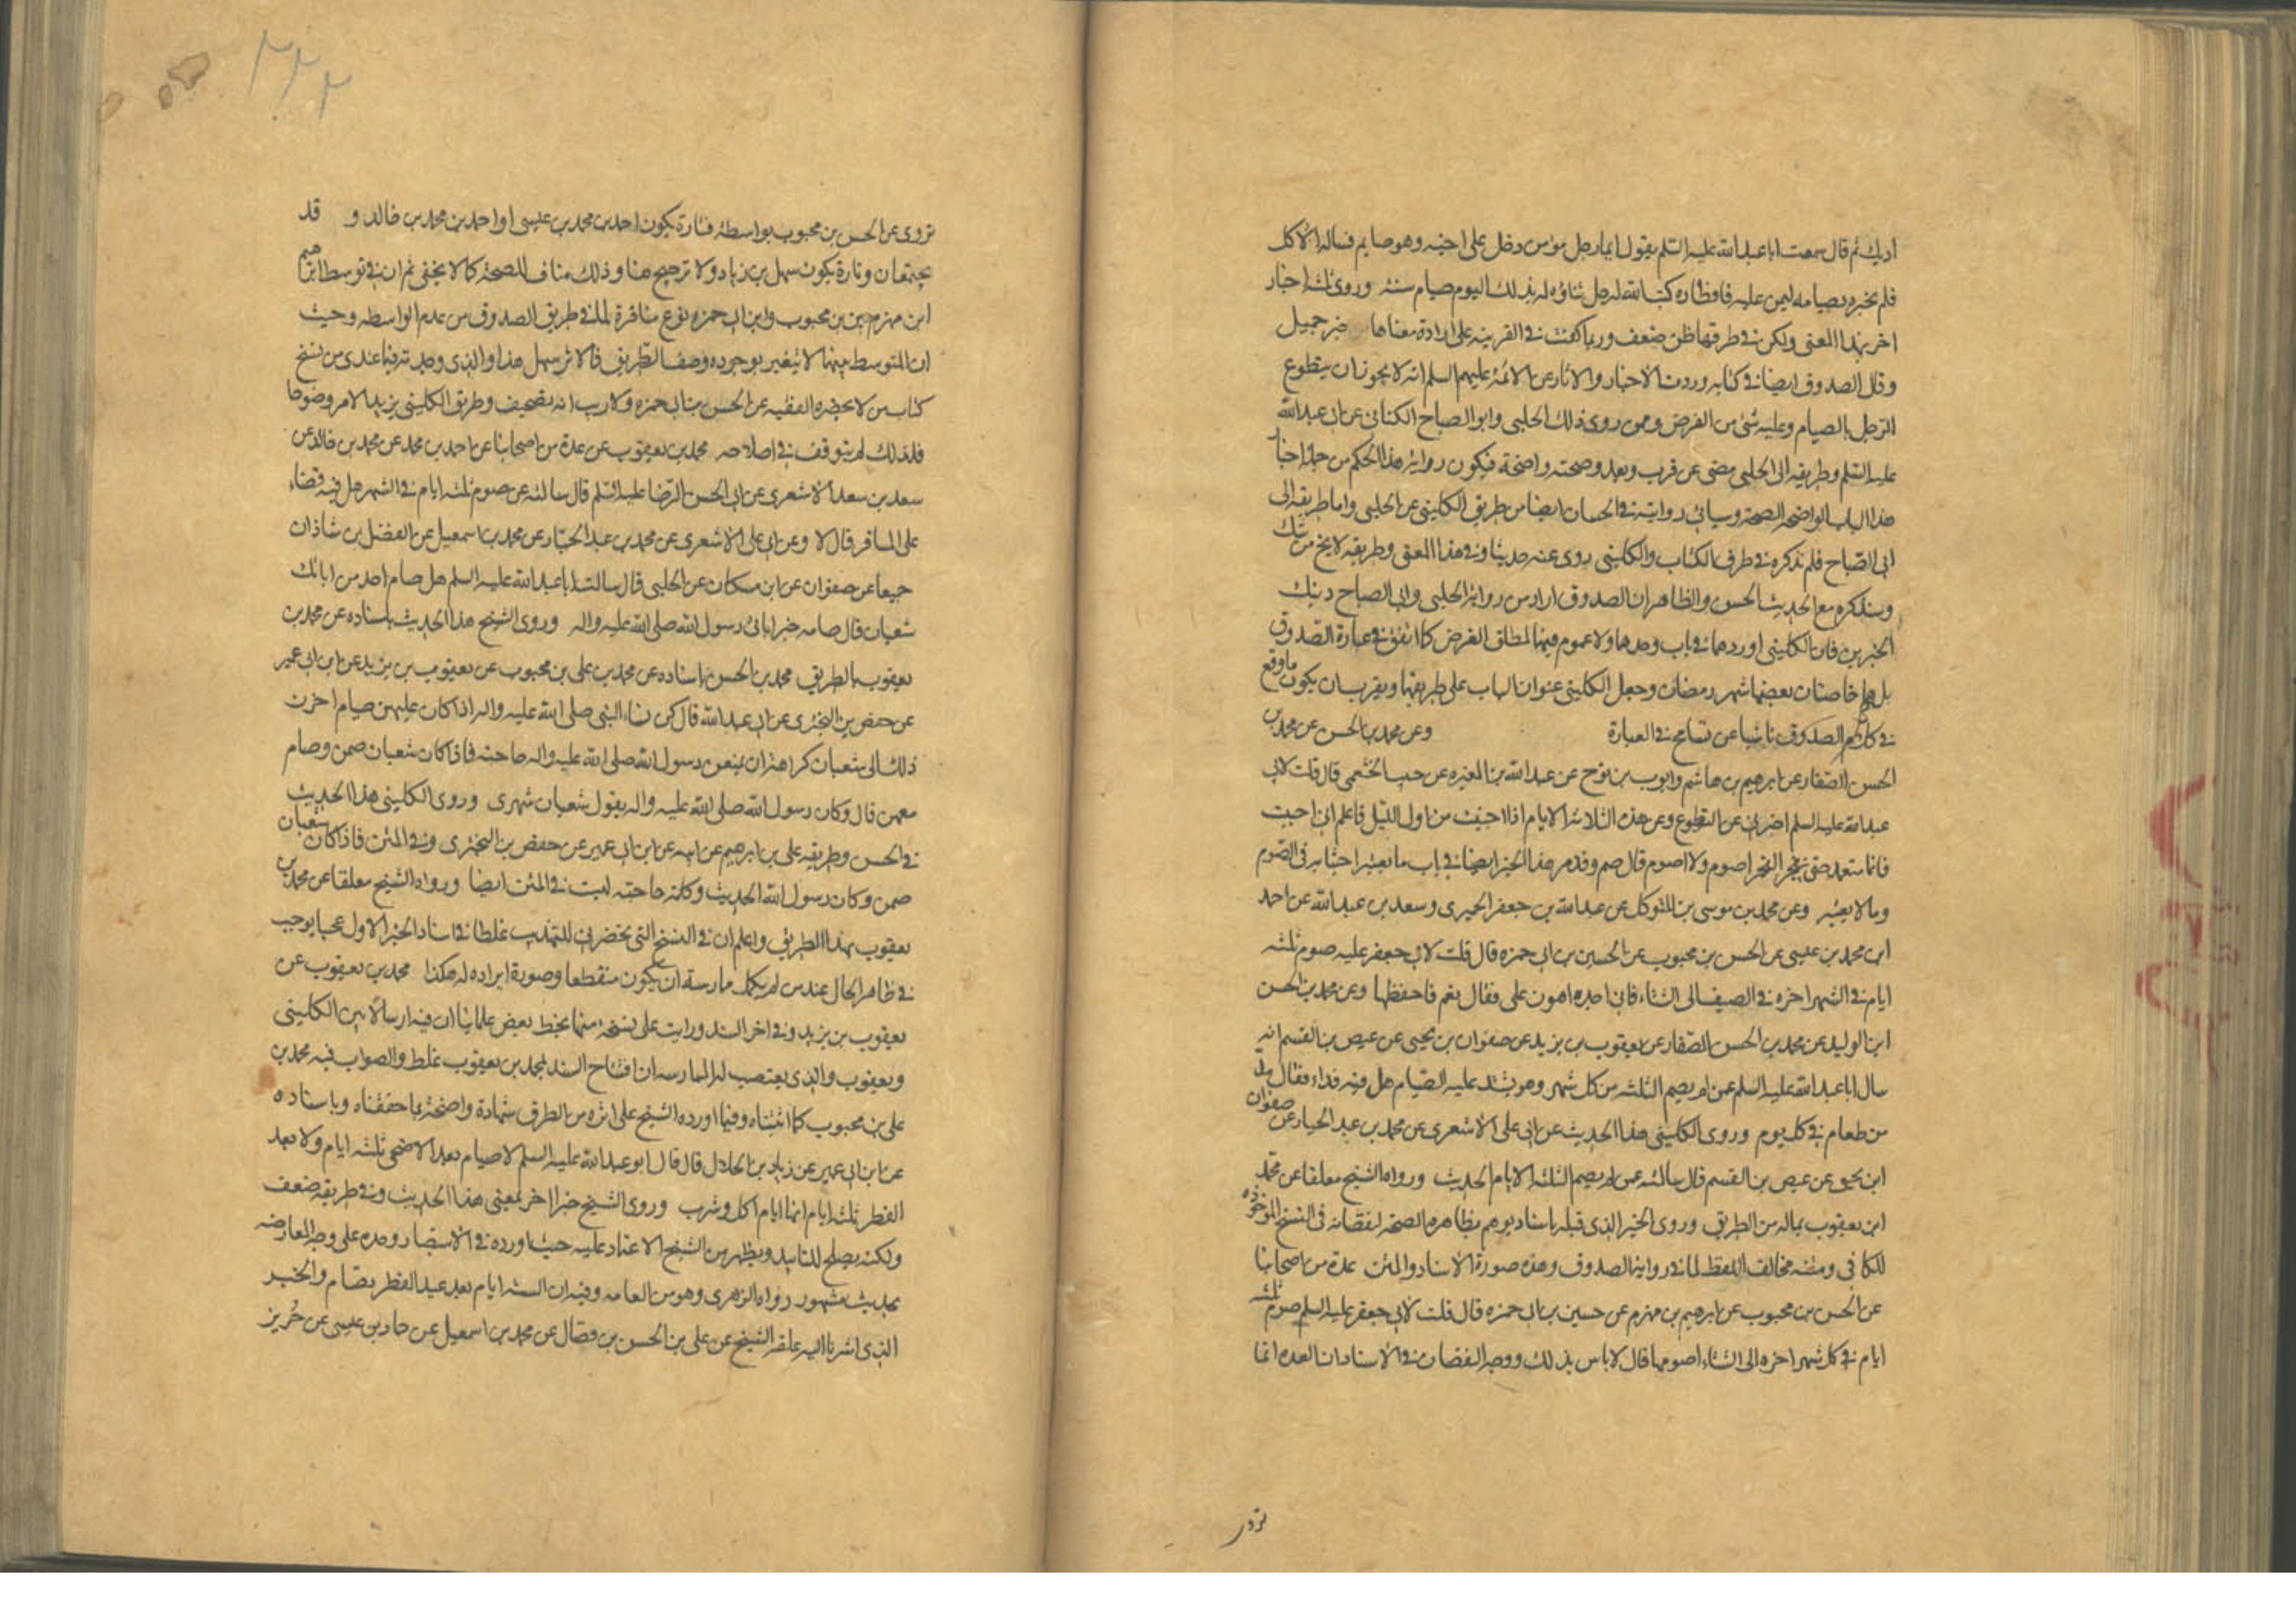 اديك ثم قال سمعت ابا عبدالله عليه السلم يقول ايما رجل مؤمن دخل على اخيه وهو صايم فساله الاكل
فلم يخبره بصيامه ليمن عليه فافطاره كتب الله له جل ثناؤه له بذلك اليوم صيام سنة وروى ثلثه اخبار
اخر بهذا المعنى ولكن في طرقها ظن ضعف وربما كفت في القرينه على ارادة معناها خبر جميل
وقال الصدوق ايضا في كتابه وردت الاخبار والاثار عن الائمة عليهم السلم انه لا يجوز ان يتطوع
الرجل بالصيام وعليه شئ من الفرض وممن روى ذلك الحلبى وابو الصباح الكنانى عن ابى عبدالله
عليه السلم وطريقه الى الحلبى مضى عن قرب وبعد وصحته واضحة فيكون رواية هذا الحكم من جملة اخبار
هذا الباب الواضحه الصحة وسياتى روايته في الحسان ايضا من طريق الكلينى عن الحلبى واما طريقه الى
ابى الصباح فلم نذكره في طرف الكتاب والكلينى روى عنه حديثا وفي هذا المعنى وطريقه لا يخ من شك
وسنذكره مع الحديث الحسن والظاهر ان الصدوق اراد من رواية الحلبى وابى الصباح ذينك
الخبرين فان الكلينى اوردهما في باب وحدهما ولا عموم فيهما لمطلق الفرض كما اتفق في عبارة الصدوق
بل هما خاصتان بعضها شهر رمضان وجعل الكلينى عنوان الباب على طريقتها ويقرب ان يكون ما وقع
في كلام الصدوق ناشيا عن تسامح في العبارة وعن محمد بن الحسن عن محمد بن
الحسن الصفار عن ابرهيم بن هاشم وايوب بن نوح عن عبدالله بن المغيره عن حبيب الخثعمى قال قلت لابى
عبدالله عليه السلم اخبرنى عن التطوع وعن هذه الثلاثة الايام اذا اجنبت من اول الليل فاعلم انى اجنبت
فانام متعمدا حتى ينفجر الفجر اصوم ولا اصوم قال صم وقد مر هذا الخبر ايضا في باب ما تعتبر احتسابه في الصوم
وما لا يعتبر وعن محمد بن موسى بن المتوكل عن عبدالله بن جعفر الحميرى وسعد بن عبدالله عن احمد
ابن محمد بن عيسى عن الحسن بن محبوب عن الحسين بن ابى حمزه قال قلت لابى جعفر عليه صوم ثلثه
ايام في الشهر اخره في الصيف الى الشتاء فانى اجده اهون على فقال نعم فاحفظها وعن محمد بن الحسن
ابن الوليد عن محمد بن الحسن الصفار عن يعقوب بن يزيد عن صفوان بن يحيى عن عيص بن القسم انه
سال ابا عبدالله عليه السلم عن لم يصم الثلثه من كل شهر وهو يشتد عليه الصيام هل فيه فداء فقال مد
من طعام في كل يوم وروى الكلينى هذا الحديث عن ابى على الاشعرى عن محمد بن عبد الجبار عن صفوان
ابن يحيى عن عيص بن القسم قال سالته عمن لم يصم الثلثه الايام الحديث ورواه الشيخ معلقا عن محمد
ابن يعقوب بماله من الطريق وروى الخبر الذى قبله باسناد يوهم بظاهره الصحة لنقصانه فى النسخ الموجوده
للكافى ومتنه مخالف اللفظ لما في رواية الصدوق وهذه صورة الاسناد والمتن عدة من اصحابنا
عن الحسن بن محبوب عن ابرهيم بن مهزم عن حسين بن ابى حمزه قال قلت لابى جعفر عليه السلم صوم ثلثه
ايام في كل شهر اخره الى الشتاء اصومها قال لا باس بذلك ووجه النقصان في الاسناد ان العده انما
تروى
٢٢٢
تروى عن الحسن بن محبوب بواسطة فتارة يكون احمد بن محمد بن عيسى او احمد بن محمد بن خالد و قد
يجتمعان وتارة يكون سهل بن زياد ولا ترجيح هنا وذلك مناف للصحة كما لا يخفى ثم ان في توسط ابرهيم
ابن مهزم بين بن محبوب وابن ابى حمزه نوع منافرة لما في طريق الصدوق من عدم الواسطه وحيث
ان المتوسط بينهما لا يتغير بوجوده وصف الطريق فالاثر سهل هذا والذى وجدته فيما عندى من نسخ
كتاب من لا يحضره الفقيه عن الحسن بن ابى حمزه ولا ريب انه تصحيف وطريق الكلينى يزيد الامر وضوحا
فلذلك لم يتوقف في اصلاحه محمد بن يعقوب عن عدة من اصحابنا عن احمد بن محمد عن محمد بن خالد عن
سعد بن سعد الاشعرى عن ابى الحسن الرضا عليه السلم قال سالته عن صوم ثلثه ايام في الشهر هل فيه قضاء
على المسافر قال لا وعن ابى على الاشعرى عن محمد بن عبد الجبار عن محمد بن اسمعيل عن الفضل بن شاذان
جميعا عن صفوان عن ابن مسكان عن الحلبى قال سالت ابا عبدالله عليه السلم هل صام احد من ابائك
شعبان قال صامه خير ابائى رسول الله صلى الله عليه واله وروى الشيخ هذا الحديث باسناده عن محمد بن
يعقوب بالطريق محمد بن الحسن باسناده عن محمد بن على بن محبوب عن يعقوب بن يزيد عن ابن ابى عمير
عن حفص بن البخترى عن ابى عبدالله قال كن نساء النبى صلى الله عليه واله اذا كان عليهن صيام اخرن
ذلك الى شعبان كراهة ان يمنعن رسول الله صلى الله عليه واله حاجته فاذا كان شعبان صمن وصام
معهن قال وكان رسول الله صلى الله عليه واله يقول شعبان شهرى وروى الكلينى هذا الحديث
في الحسن وطريقه على بن ابرهيم عن ابيه عن ابن ابى عمير عن حفص بن البخترى وفي المتن فاذا كان شعبان
صمن وكان رسول الله الحديث وكلمة حاجته ليست في المتن ايضا ورواه الشيخ معلقا عن محمد بن
يعقوب بهذا الطريق واعلم ان في النسخ التى تحضرنى للتهذيب غلطا في اسناد الخبر الاول عجيبا يوجب
في ظاهر الحال عند من لم يكمل ممارسته ان يكون منقطعا وصورة ايراده له هكذا محمد بن يعقوب عن
يعقوب بن يزيد وفي اخر السند ورايت على نسخة منها بخط بعض علمائنا ان فيه ارسالا بين الكلينى
ويعقوب والذى يقتضيه الممارسه ان افتتاح السند لمحمد بن يعقوب غلط والصواب فيه محمد بن
على بن محبوب كما اثبتناه وفيما اورده الشيخ على اثره من الطرق شهادة واضحة بما حققناه وباسناده
عن ابن ابى عمير عن زياد بن ابى الحلال قال قال ابو عبدالله عليه السلم لا صيام بعد الاضحى ثلثه ايام ولا بعد
الفطر ثلثه ايام انها ايام اكل وشرب وروى الشيخ خبرا اخر بمعنى هذا الحديث وفي طريقه ضعف
ولكنه يصلح للتاييد ويظهر من الشيخ الاعتماد عليه حيث اورده في الاستبصار وحده على وجه المعارضه
بحديث مشهور رواه الزهرى وهو من العامه وفيه ان الستة ايام بعد عيد الفطر يصام والخبر
الذى اشرنا اليه علقه الشيخ عن على بن الحسن بن فضال عن محمد بن اسمعيل عن حماد بن عيسى عن حريز